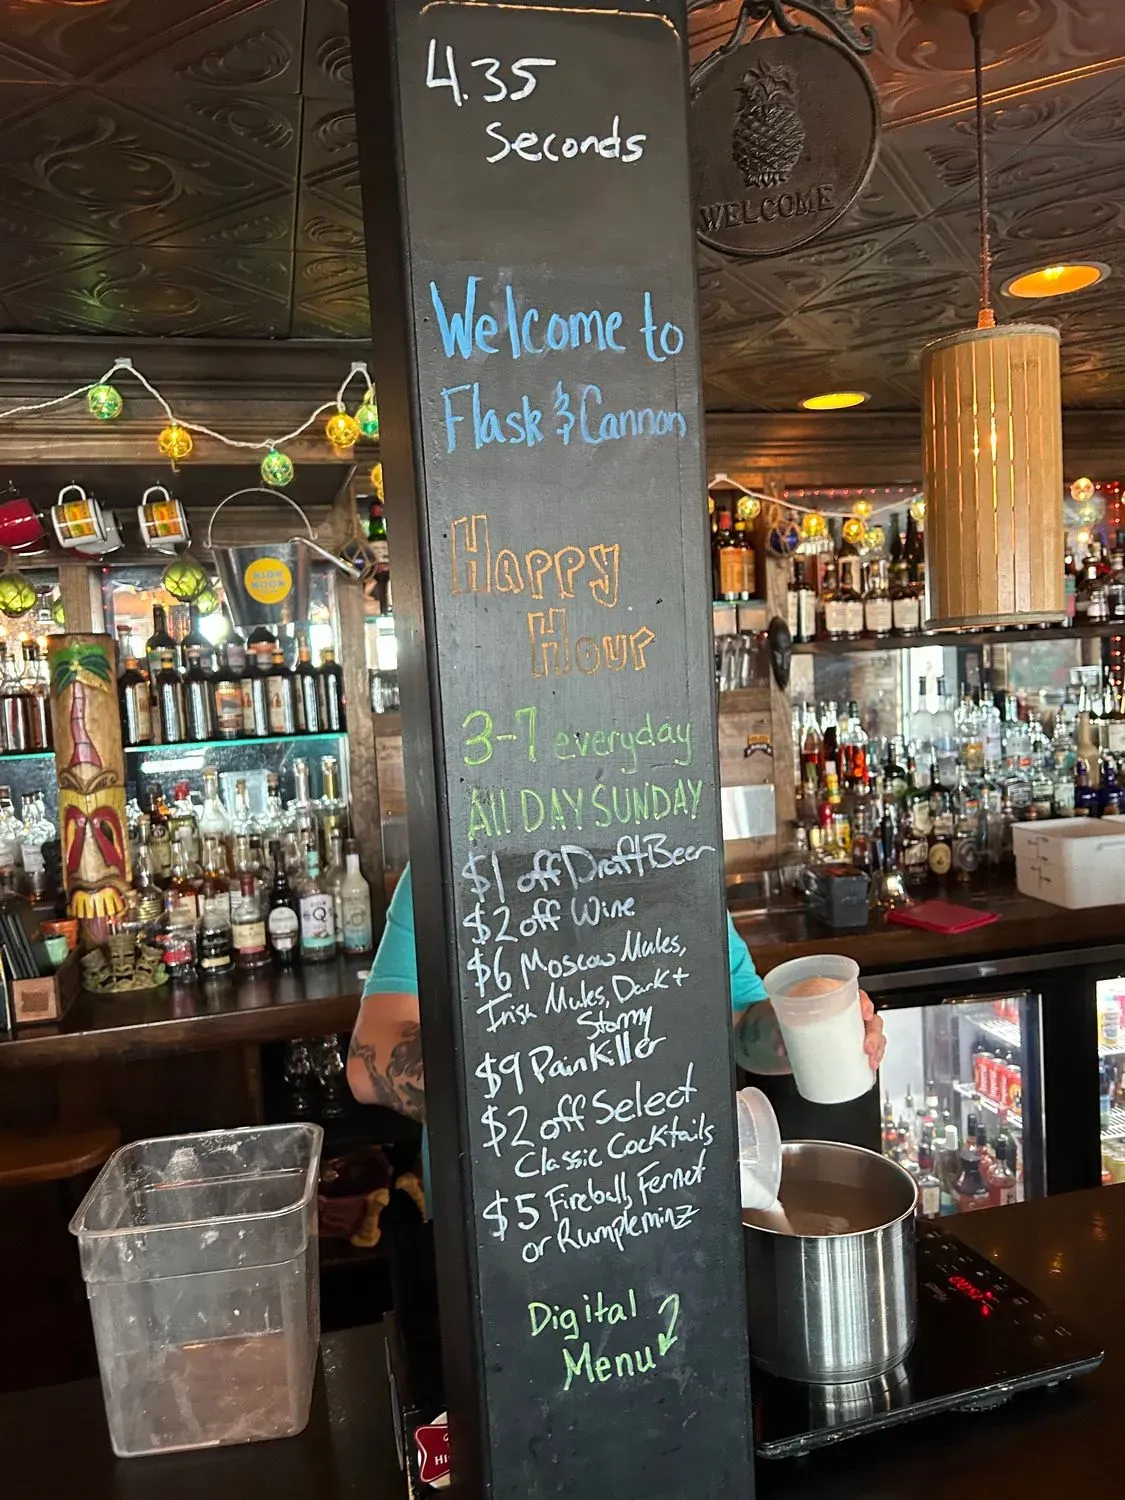 4.35
Seconds
WELCOME
Welcome to
Flask & Cannon
Happy
Hour
3-7 everyday
All DAY SUNDAY
$1 off Draft Beer
$2 off Wine
$6 Moscow Mules,
Irish Mules, Dark +
Stormy
$9 PainKiller
$2 off Select
Classic Cocktails
$5 Fireball, Fernet
or Rumpleminz
Digital
Menu
HIGH
NOON
HI